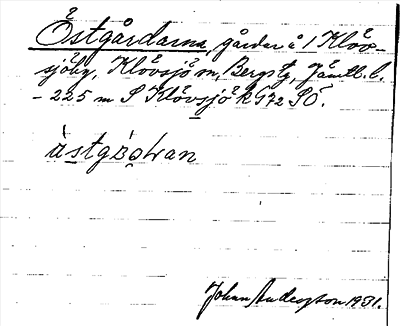 Östgårdarna, gårdar å 1 Klöv-
sjöby, Klövsjö sn, Bergs tg, Jämtl. l.
- 225 m S Klövsjö k 972 SÖ.
Johan Anderzson 1931.